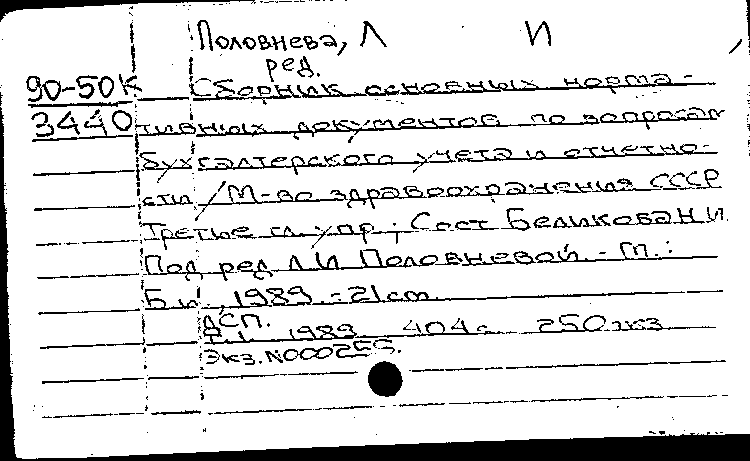 Половнева, Л И
ред.
90-50к Сборник основных норма-
3440 тивных документов по вопросам
бухгалтерского учета и отчетно-
сти / М-во здравоохранения СССР
Третье гл. упр ; Сост Беликова Н И.
Под ред Л И Половневой. - М. :
Б и , 1989 - 21 cm.
ДСП.
Т. 1. 1989. 404 с. 250 экз
Экз. N000255.